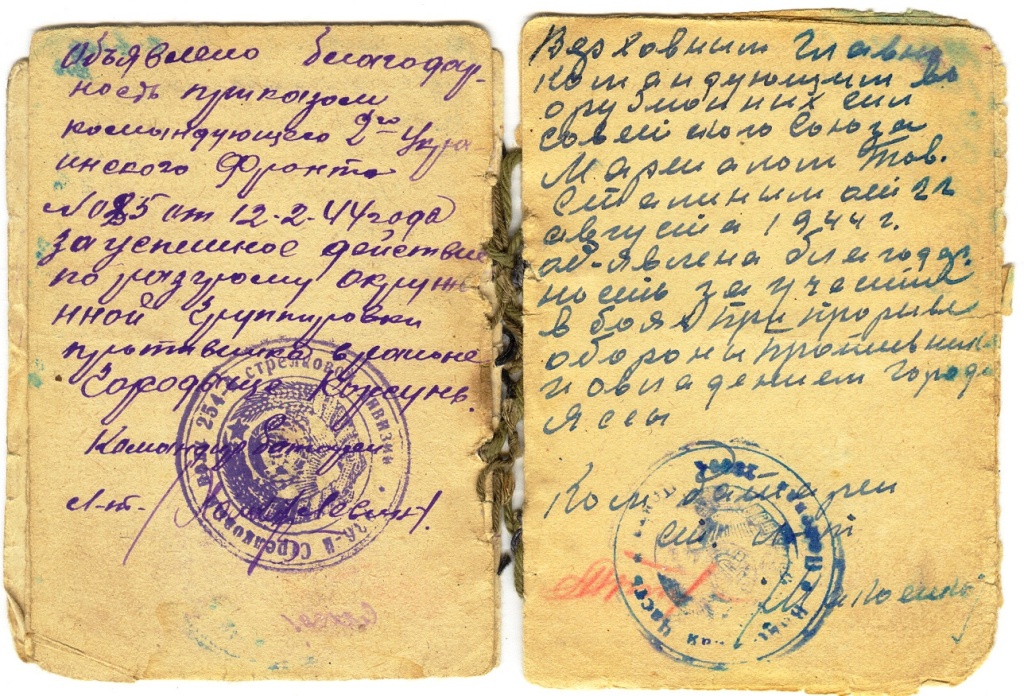 Объявлено благодар-
ность приказом
командующего 2го Укра
инского Фронта
от 12-2-44 года
за успешное действие
по разгрому окруже
нной группировки
противника в районе
Городище Корсунь.
Командир батареи
Л-т.
254-й стрелковой дивизии
Верховным Главно
командующим во
оружонних сил
советского Союза
Маршалом Тов.
Сталиным от 22
августа 1944 г.
об-явлена благодар
ность за участие
в боях при прорыве
обороны противник
и овладением города
Яссы
Ком батареи
ст. л-т